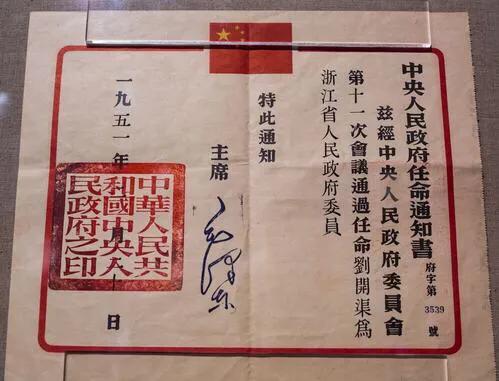 中央人民政府任命通知書
府字第 3539 號
茲經中央人民政府委員會
第十一次會議通過任命劉開渠爲
浙江省人民政府委員
特此通知
主席
毛澤東
一九五一年 月 日
中華人民共
和國中央人
民政府之印